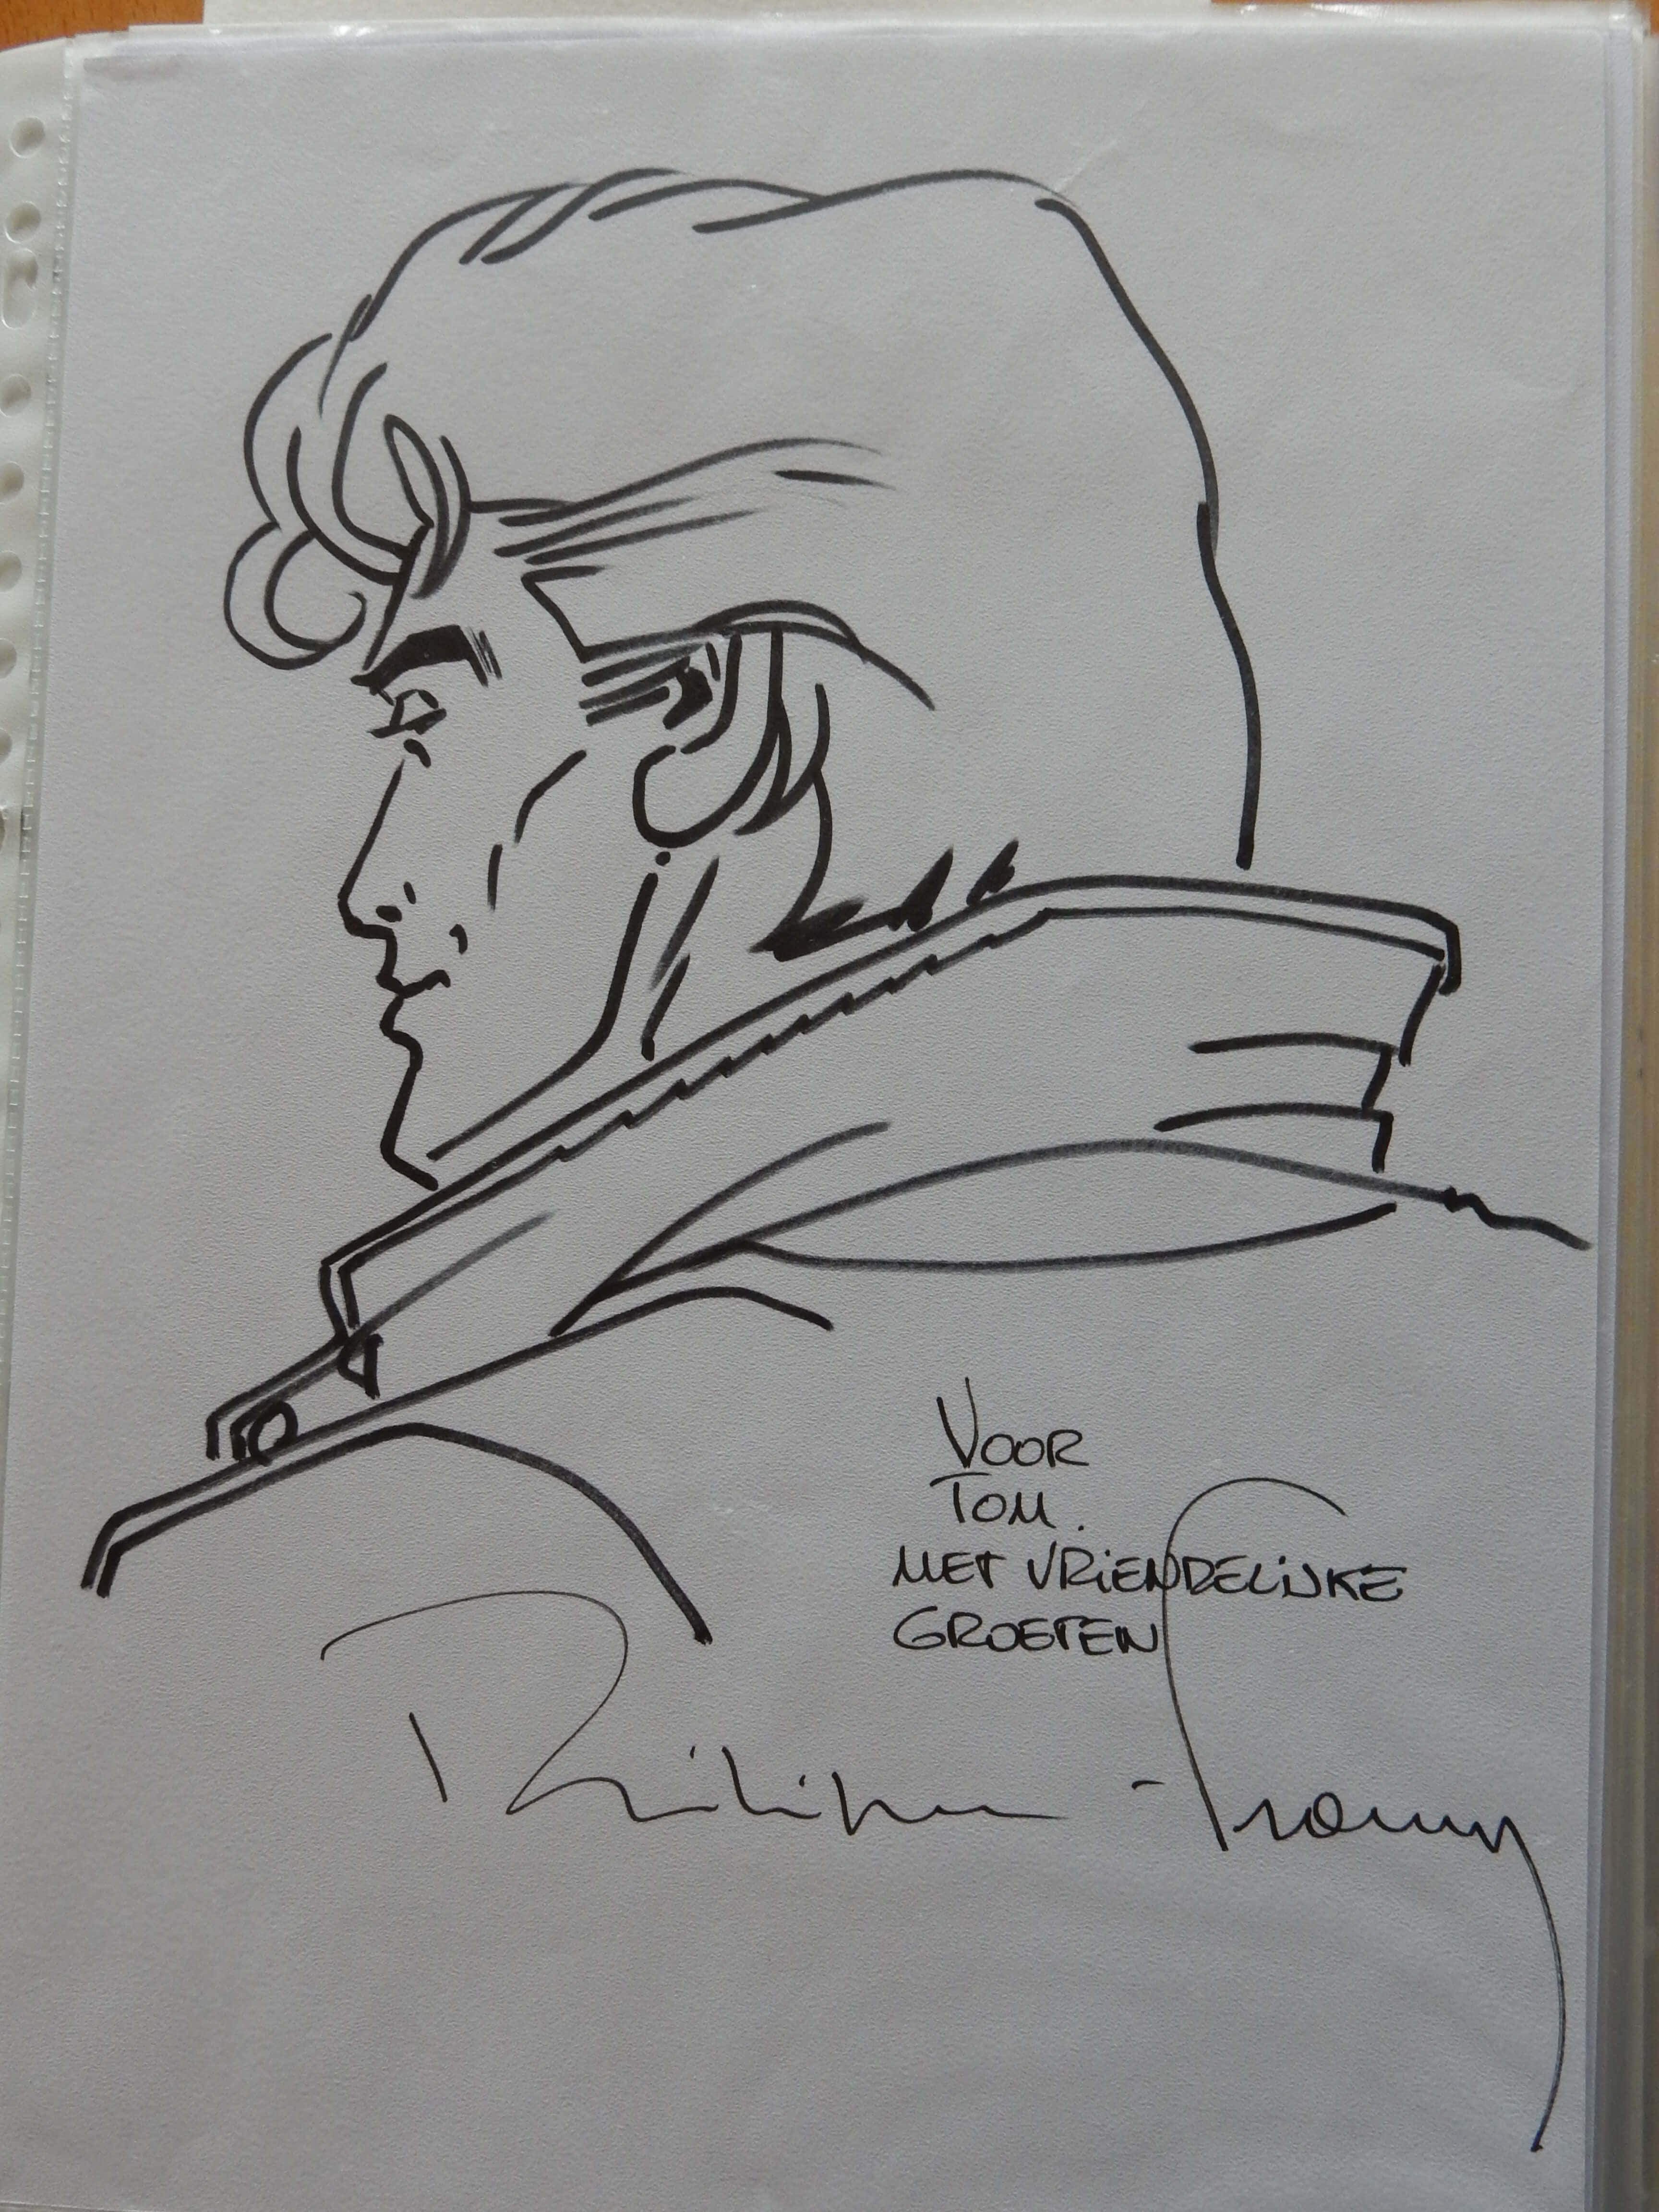 VOOR
TOM.
MET VRIENDELIJKE
GROETEN
Philippe Francq